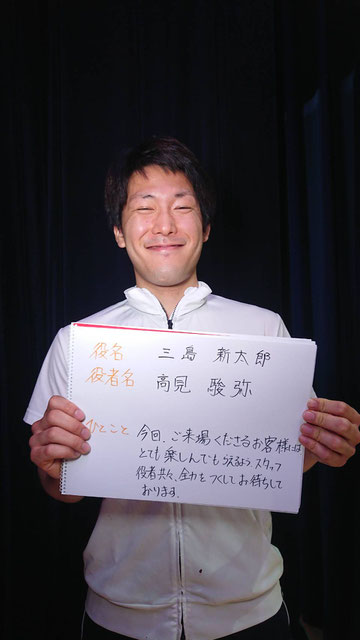 役名 三島 新太郎
役者名 高見 駿弥
ひとこと 今回、ご来場くださるお客様には
とても楽しんでもらえるよう スタッフ
役者共々、全力をつくしてお待ちして
おります。